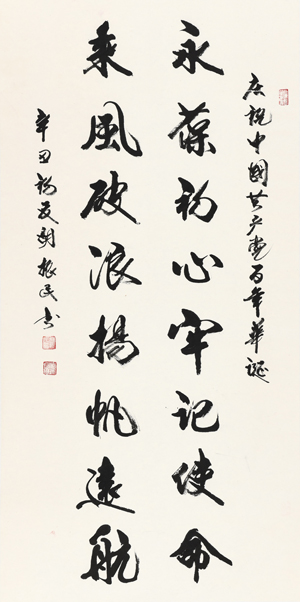 庆祝中國共产党百年華诞
永葆初心牢记使命
乘風破浪揚帆遠航
辛丑初夏刘振民书